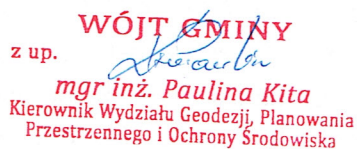 WÓJT GMINY
z up.
mgr inż. Paulina Kita
Kierownik Wydziału Geodezji, Planowania
Przestrzennego i Ochrony Środowiska